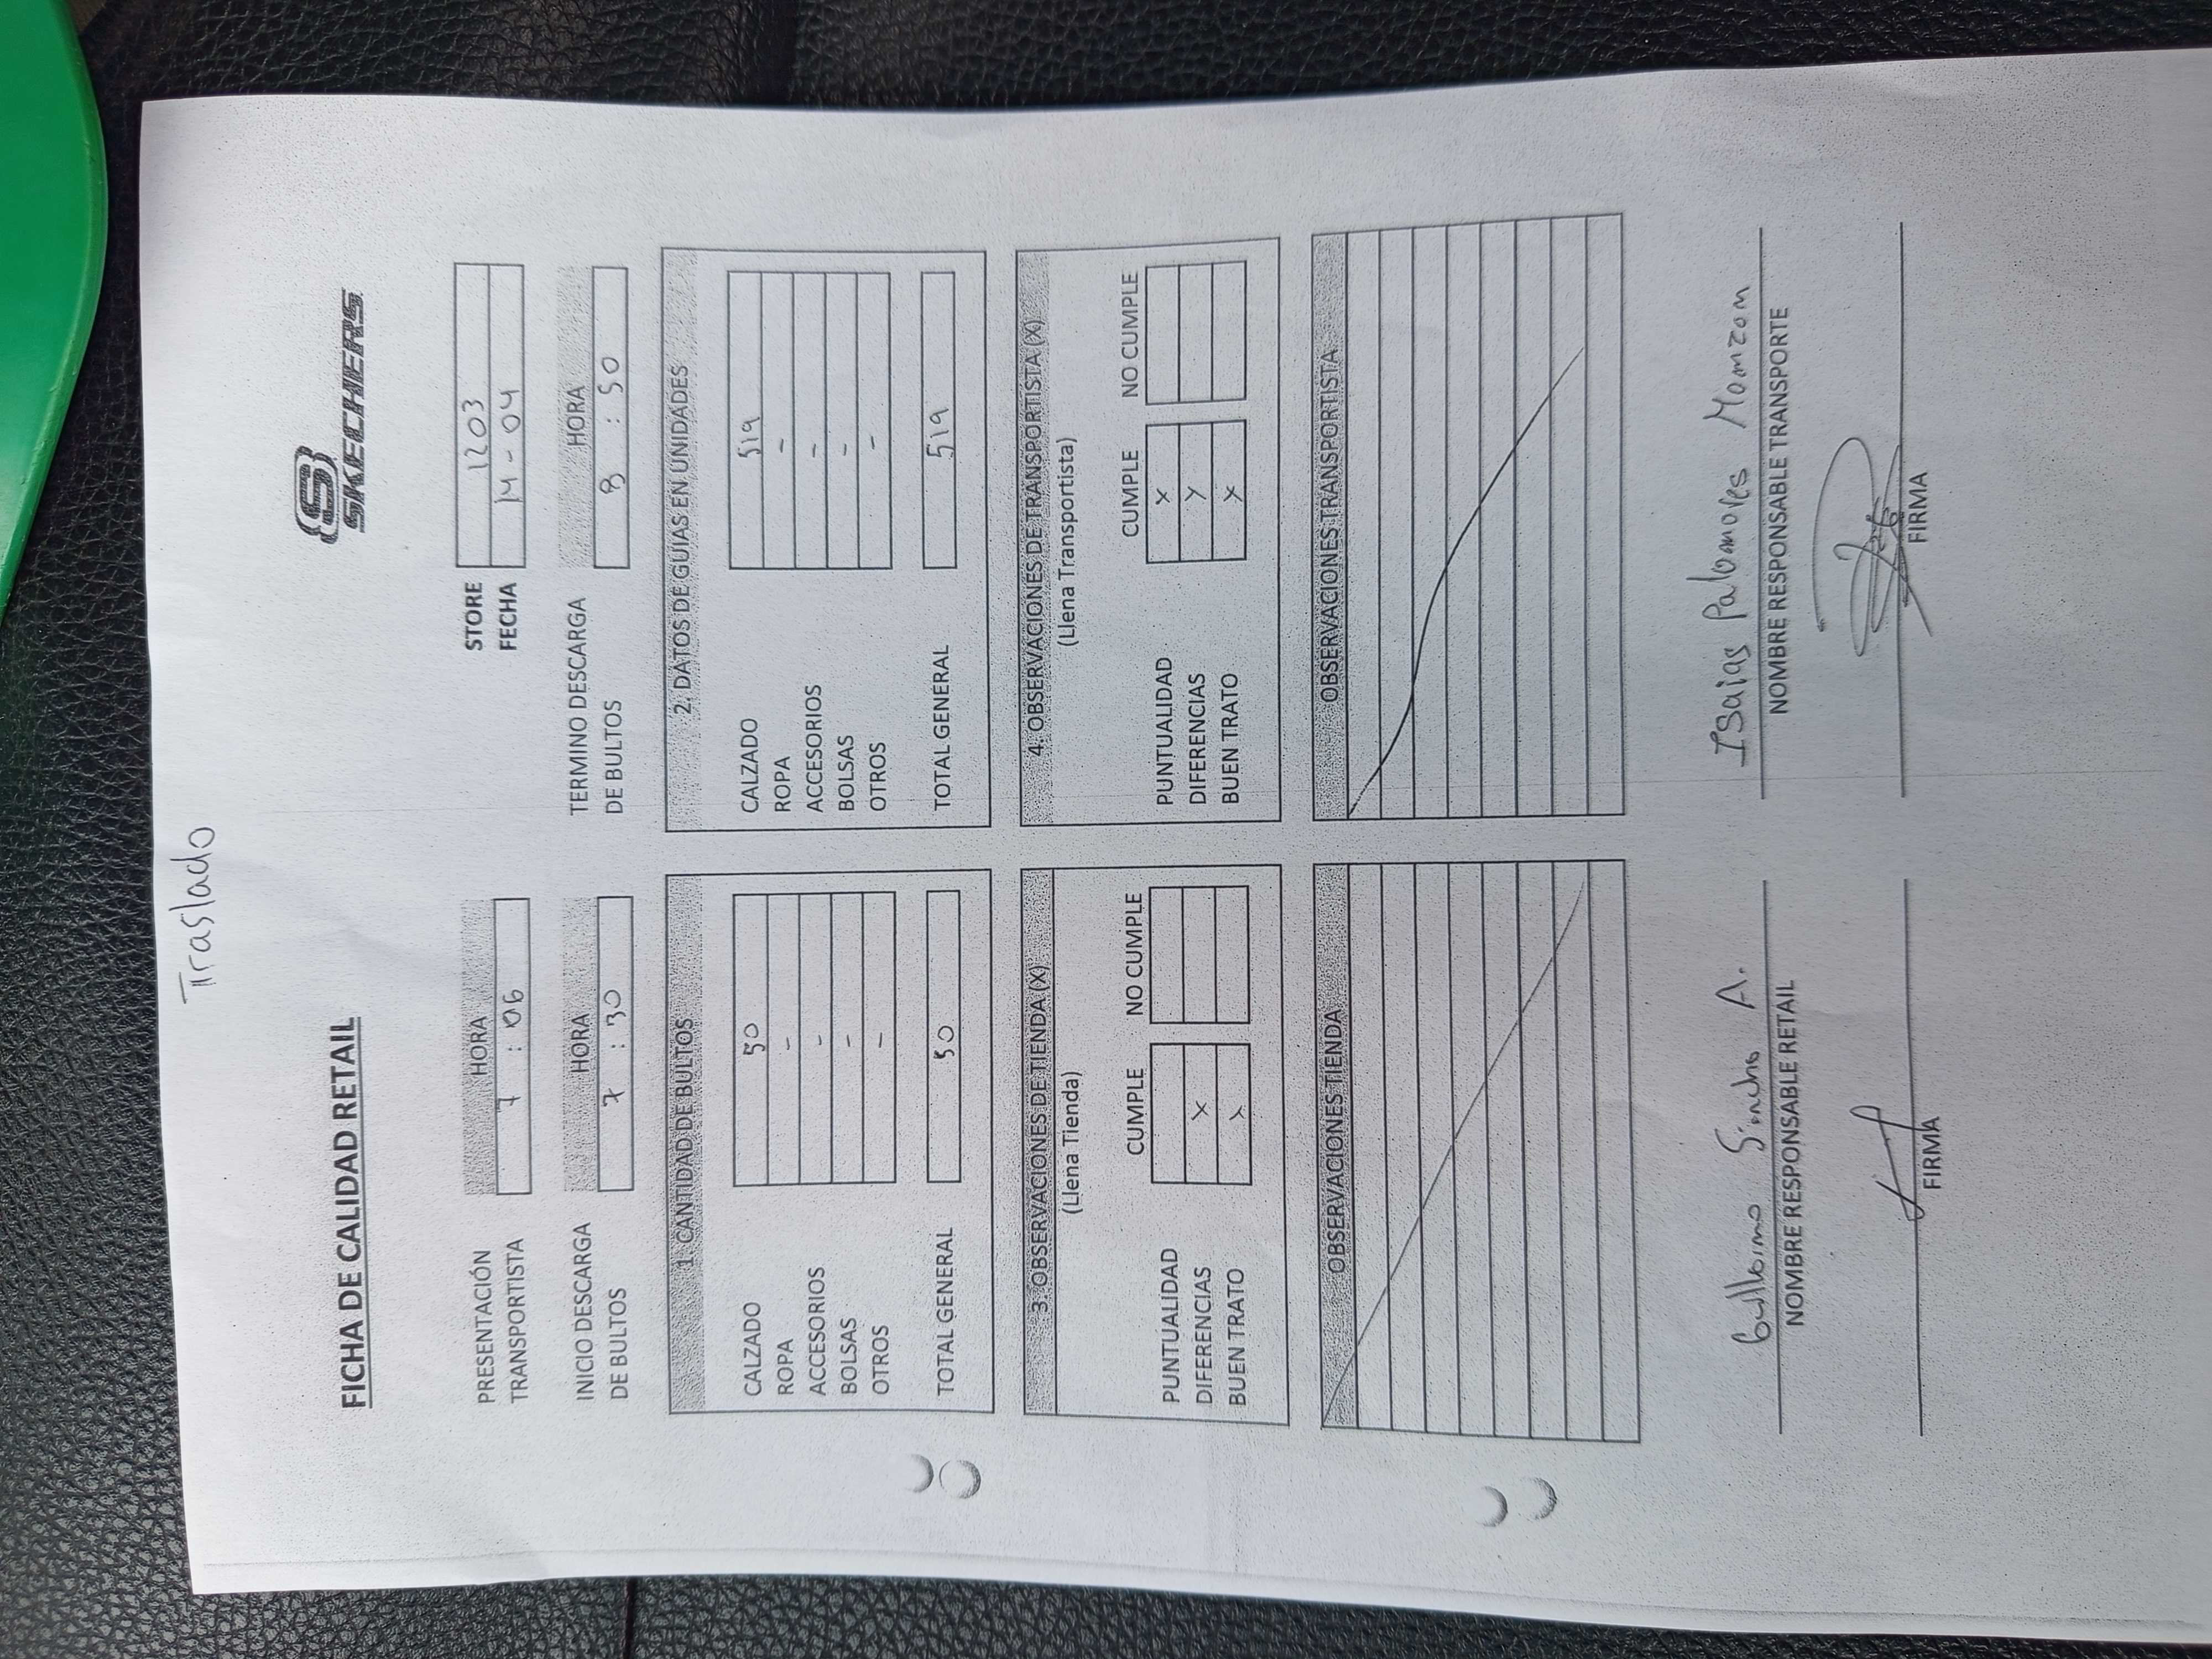 Traslado
FICHA DE CALIDAD RETAIL
SKECHERS
STORE 1203
FECHA 14-04
PRESENTACIÓN TRANSPORTISTA
HORA
7 : 06
INICIO DESCARGA DE BULTOS
HORA
7 : 30
TERMINO DESCARGA DE BULTOS
HORA
8 : 50
1. CANTIDAD DE BULTOS
CALZADO 50
ROPA -
ACCESORIOS -
BOLSAS -
OTROS -
TOTAL GENERAL 50
2. DATOS DE GUIAS EN UNIDADES
CALZADO 519
ROPA -
ACCESORIOS -
BOLSAS -
OTROS -
TOTAL GENERAL 519
3. OBSERVACIONES DE TIENDA (X)
(Llena Tienda)
CUMPLE NO CUMPLE
PUNTUALIDAD
DIFERENCIAS X
BUEN TRATO X
4. OBSERVACIONES DE TRANSPORTISTA (X)
(Llena Transportista)
CUMPLE NO CUMPLE
PUNTUALIDAD X
DIFERENCIAS X
BUEN TRATO X
OBSERVACIONES TIENDA
OBSERVACIONES TRANSPORTISTA
A.
NOMBRE RESPONSABLE RETAIL
FIRMA
Isaias Palomores Monzon
NOMBRE RESPONSABLE TRANSPORTE
FIRMA